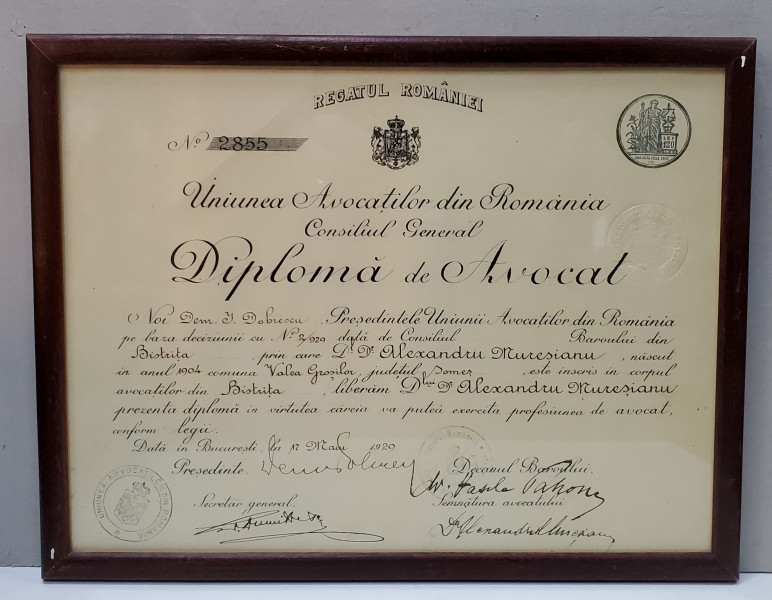 REGATUL ROMÂNIEI
No 2855
LEI 120
Uniunea Avocaților din România
Consiliul General
Diplomă de Avocat
Noi Dem. I. Dobrescu, Președintele Uniunii Avocaților din România
pe baza deciziunii cu No 2/929 dată de Consiliul Baroului din
Bistrița, prin care D. Dr. Alexandru Mureșianu, născut
în anul 1904 comuna Valea Groșilor, județul Someș, este înscris în corpul
avocaților din Bistrița, liberăm Dlui Dr. Alexandru Mureșianu
prezenta diplomă în virtutea căreia va puteà exercita profesiunea de avocat,
conform legii.
Dată în București, la 17 Maiu 1929
Președinte. Decanul Baroului.
Dr. Vasile
Secretar general. Semnătura avocatului
Dr Alexandru Mureșianu
UNIUNEA ADVOCAȚILOR DIN ROMÂNIA